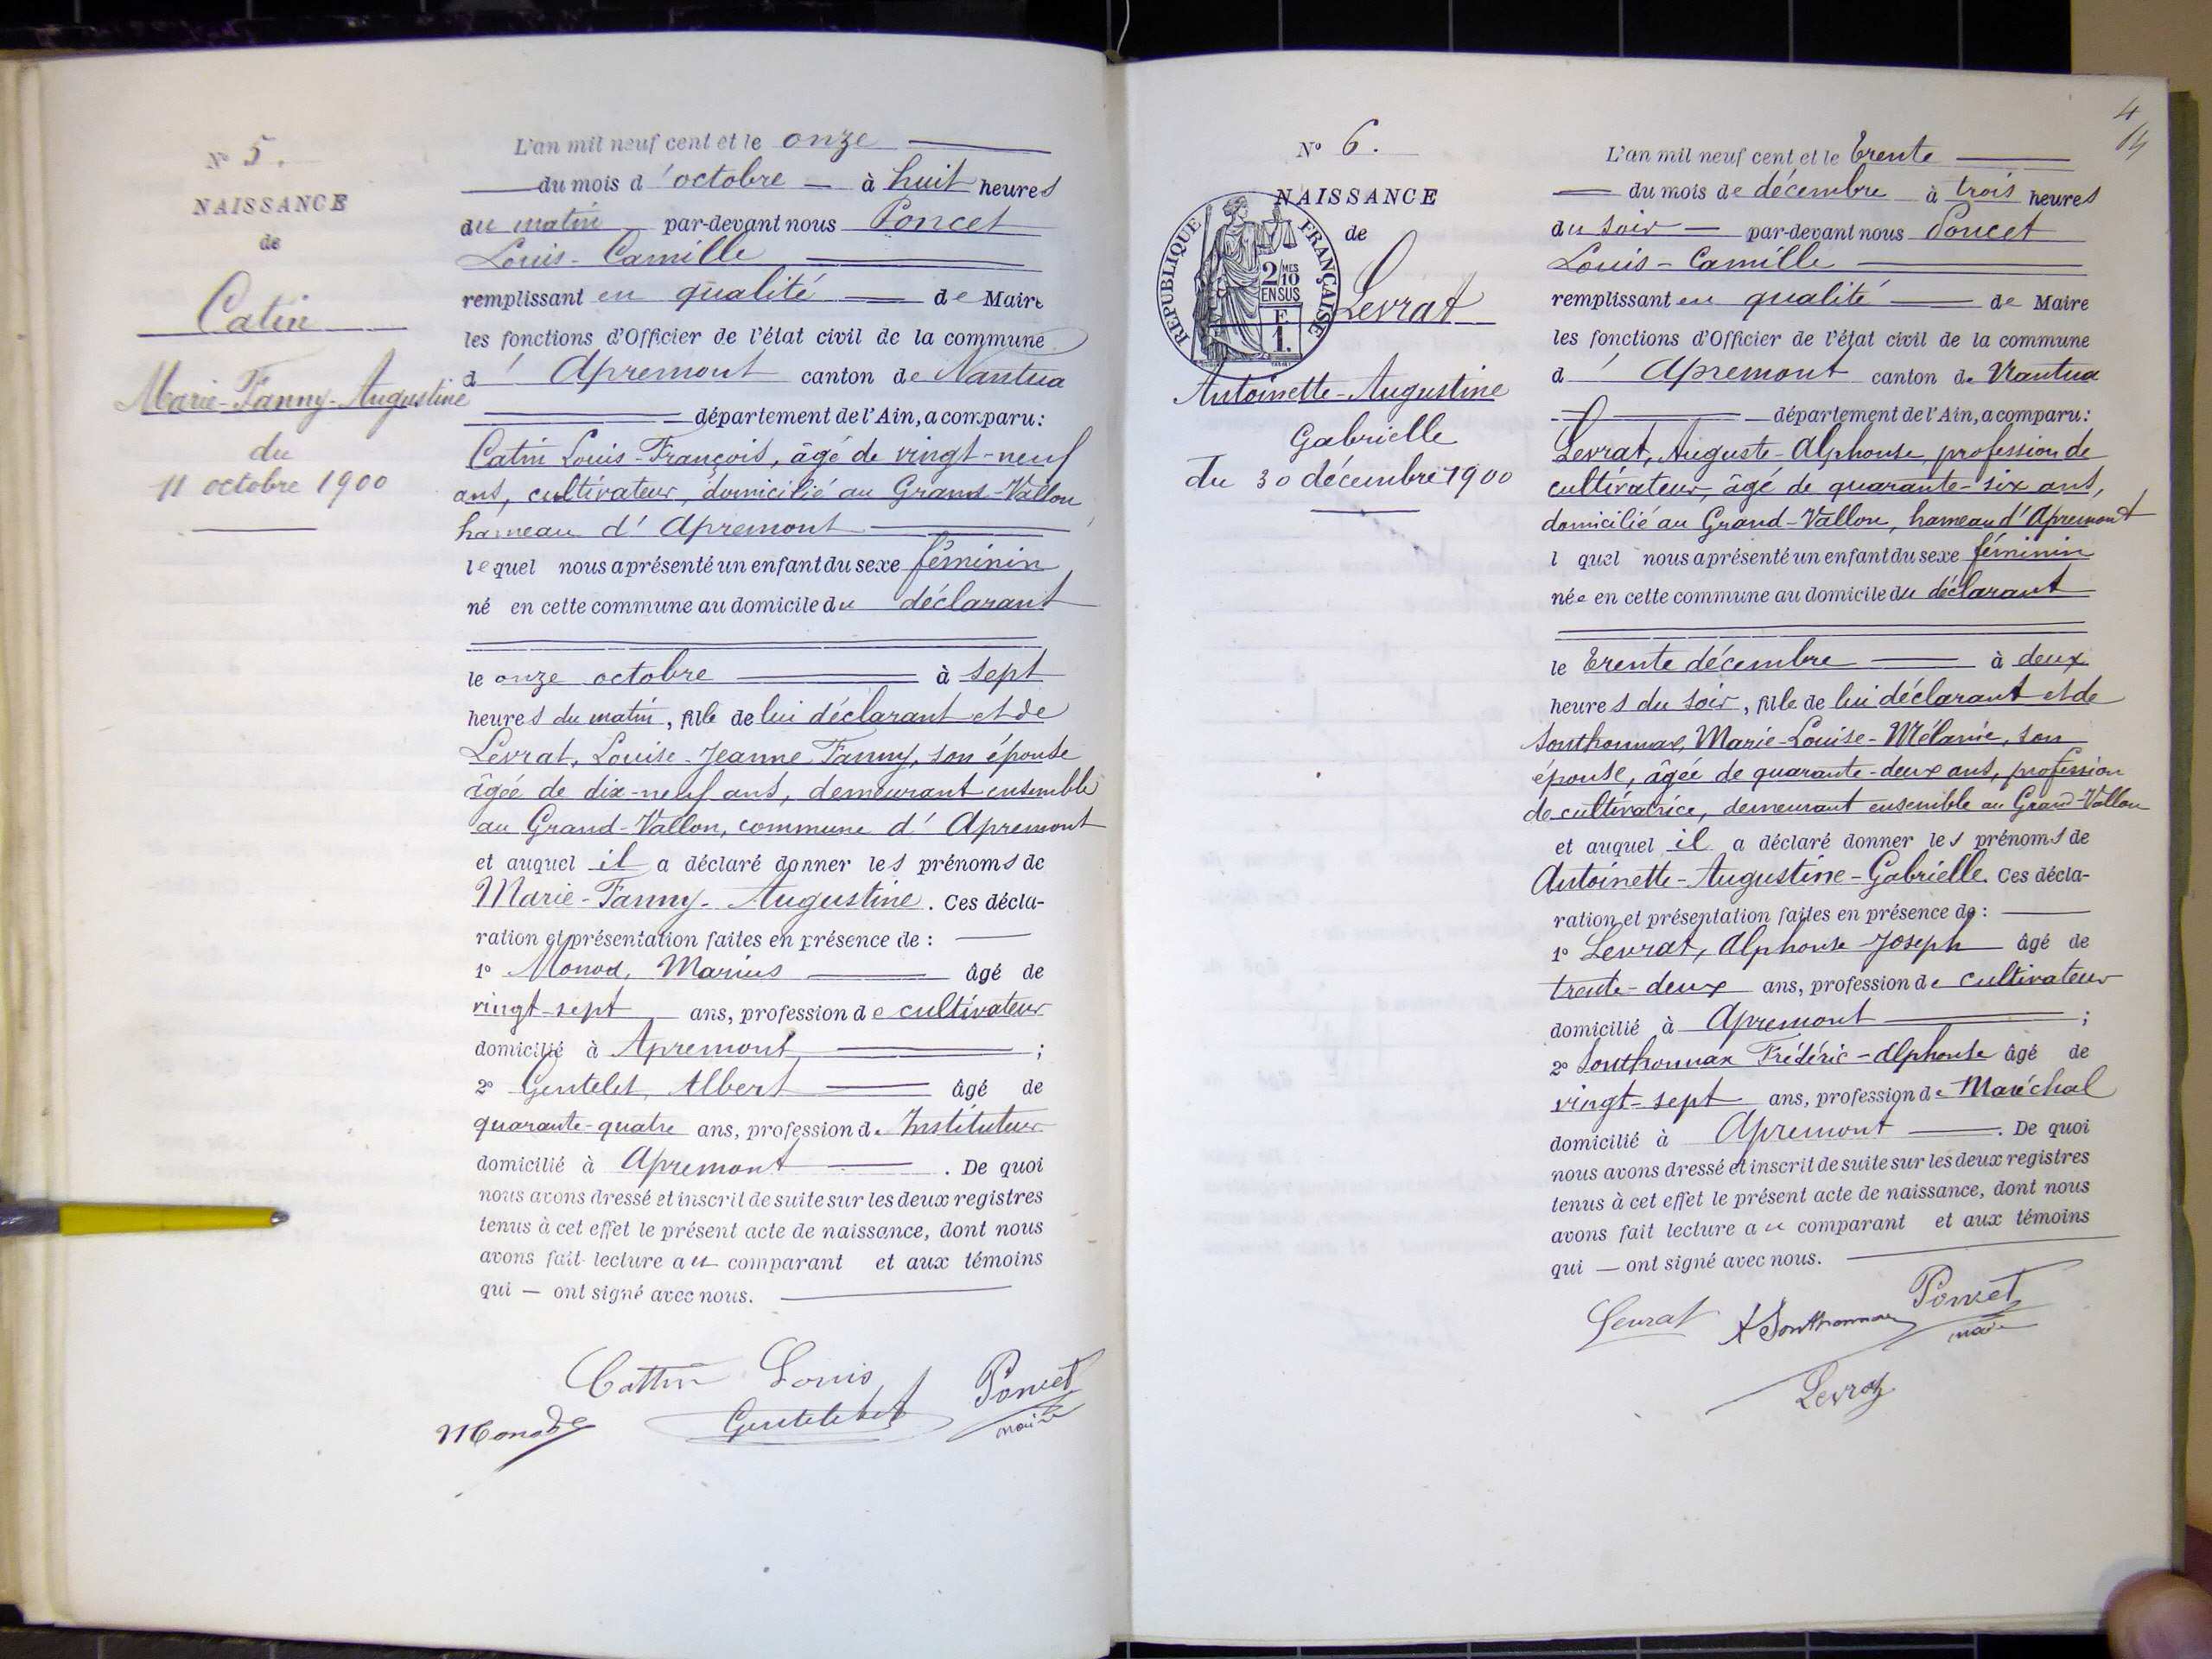 N° 5.
NAISSANCE
de
Catin
Marie-Fanny-Augustine
du
11 octobre 1900
L'an mil neuf cent et le onze
du mois d'octobre à huit heures
du matin par-devant nous Poncet
Louis-Camille
remplissant en qualité de Maire
les fonctions d'Officier de l'état civil de la commune
d'Apremont canton de Nantua
département de l'Ain, a comparu:
Catin Louis-François, âgé de vingt-neuf
ans, cultivateur, domicilié au Grand-Vallon
hameau d'Apremont
lequel nous a présenté un enfant du sexe féminin
né en cette commune au domicile du déclarant
le onze octobre à sept
heures du matin, fille de lui déclarant et de
Levrat, Louise-Jeanne Fanny, son épouse
âgée de dix-neuf ans, demeurant ensemble
au Grand-Vallon, commune d'Apremont
et auquel il a déclaré donner les prénoms de
Marie-Fanny-Augustine. Ces décla-
ration et présentation faites en présence de :
1° Monod, Marius âgé de
vingt-sept ans, profession de cultivateur
domicilié à Apremont ;
2° Gentelet, Albert âgé de
quarante-quatre ans, profession de Instituteur
domicilié à Apremont . De quoi
nous avons dressé et inscrit de suite sur les deux registres
tenus à cet effet le présent acte de naissance, dont nous
avons fait lecture au comparant et aux témoins
qui — ont signé avec nous.
Cattin Louis
Poncet
maire
Monod
Gentelet
4
N° 6.
NAISSANCE
de
RÉPUBLIQUE FRANÇAISE
2/10 MES
EN SUS
F
1.
Levrat
Antoinette-Augustine
Gabrielle
du 30 décembre 1900
L'an mil neuf cent et le trente
du mois de décembre à trois heures
du soir par-devant nous Poncet
Louis-Camille
remplissant en qualité de Maire
les fonctions d'Officier de l'état civil de la commune
d'Apremont canton de Nantua
département de l'Ain, a comparu:
Levrat, Auguste-Alphonse, profession de
cultivateur, âgé de quarante-six ans,
domicilié au Grand-Vallon, hameau d'Apremont
l quel nous a présenté un enfant du sexe féminin
née en cette commune au domicile du déclarant
le trente décembre à deux
heures du soir, fille de lui déclarant et de
Sonthonnax, Marie-Louise-Mélanie, son
épouse, âgée de quarante-deux ans, profession
de cultivatrice, demeurant ensemble au Grand-Vallon
et auquel il a déclaré donner les prénoms de
Antoinette-Augustine-Gabrielle. Ces décla-
ration et présentation faites en présence de :
1° Levrat, Alphonse-Joseph âgé de
trente-deux ans, profession de cultivateur
domicilié à Apremont ;
2° Sonthonnax Frédéric-Alphonse âgé de
vingt-sept ans, profession de Maréchal
domicilié à Apremont . De quoi
nous avons dressé et inscrit de suite sur les deux registres
tenus à cet effet le présent acte de naissance, dont nous
avons fait lecture au comparant et aux témoins
qui — ont signé avec nous.
Levrat
Sonthonnax
Poncet
maire
Levrat